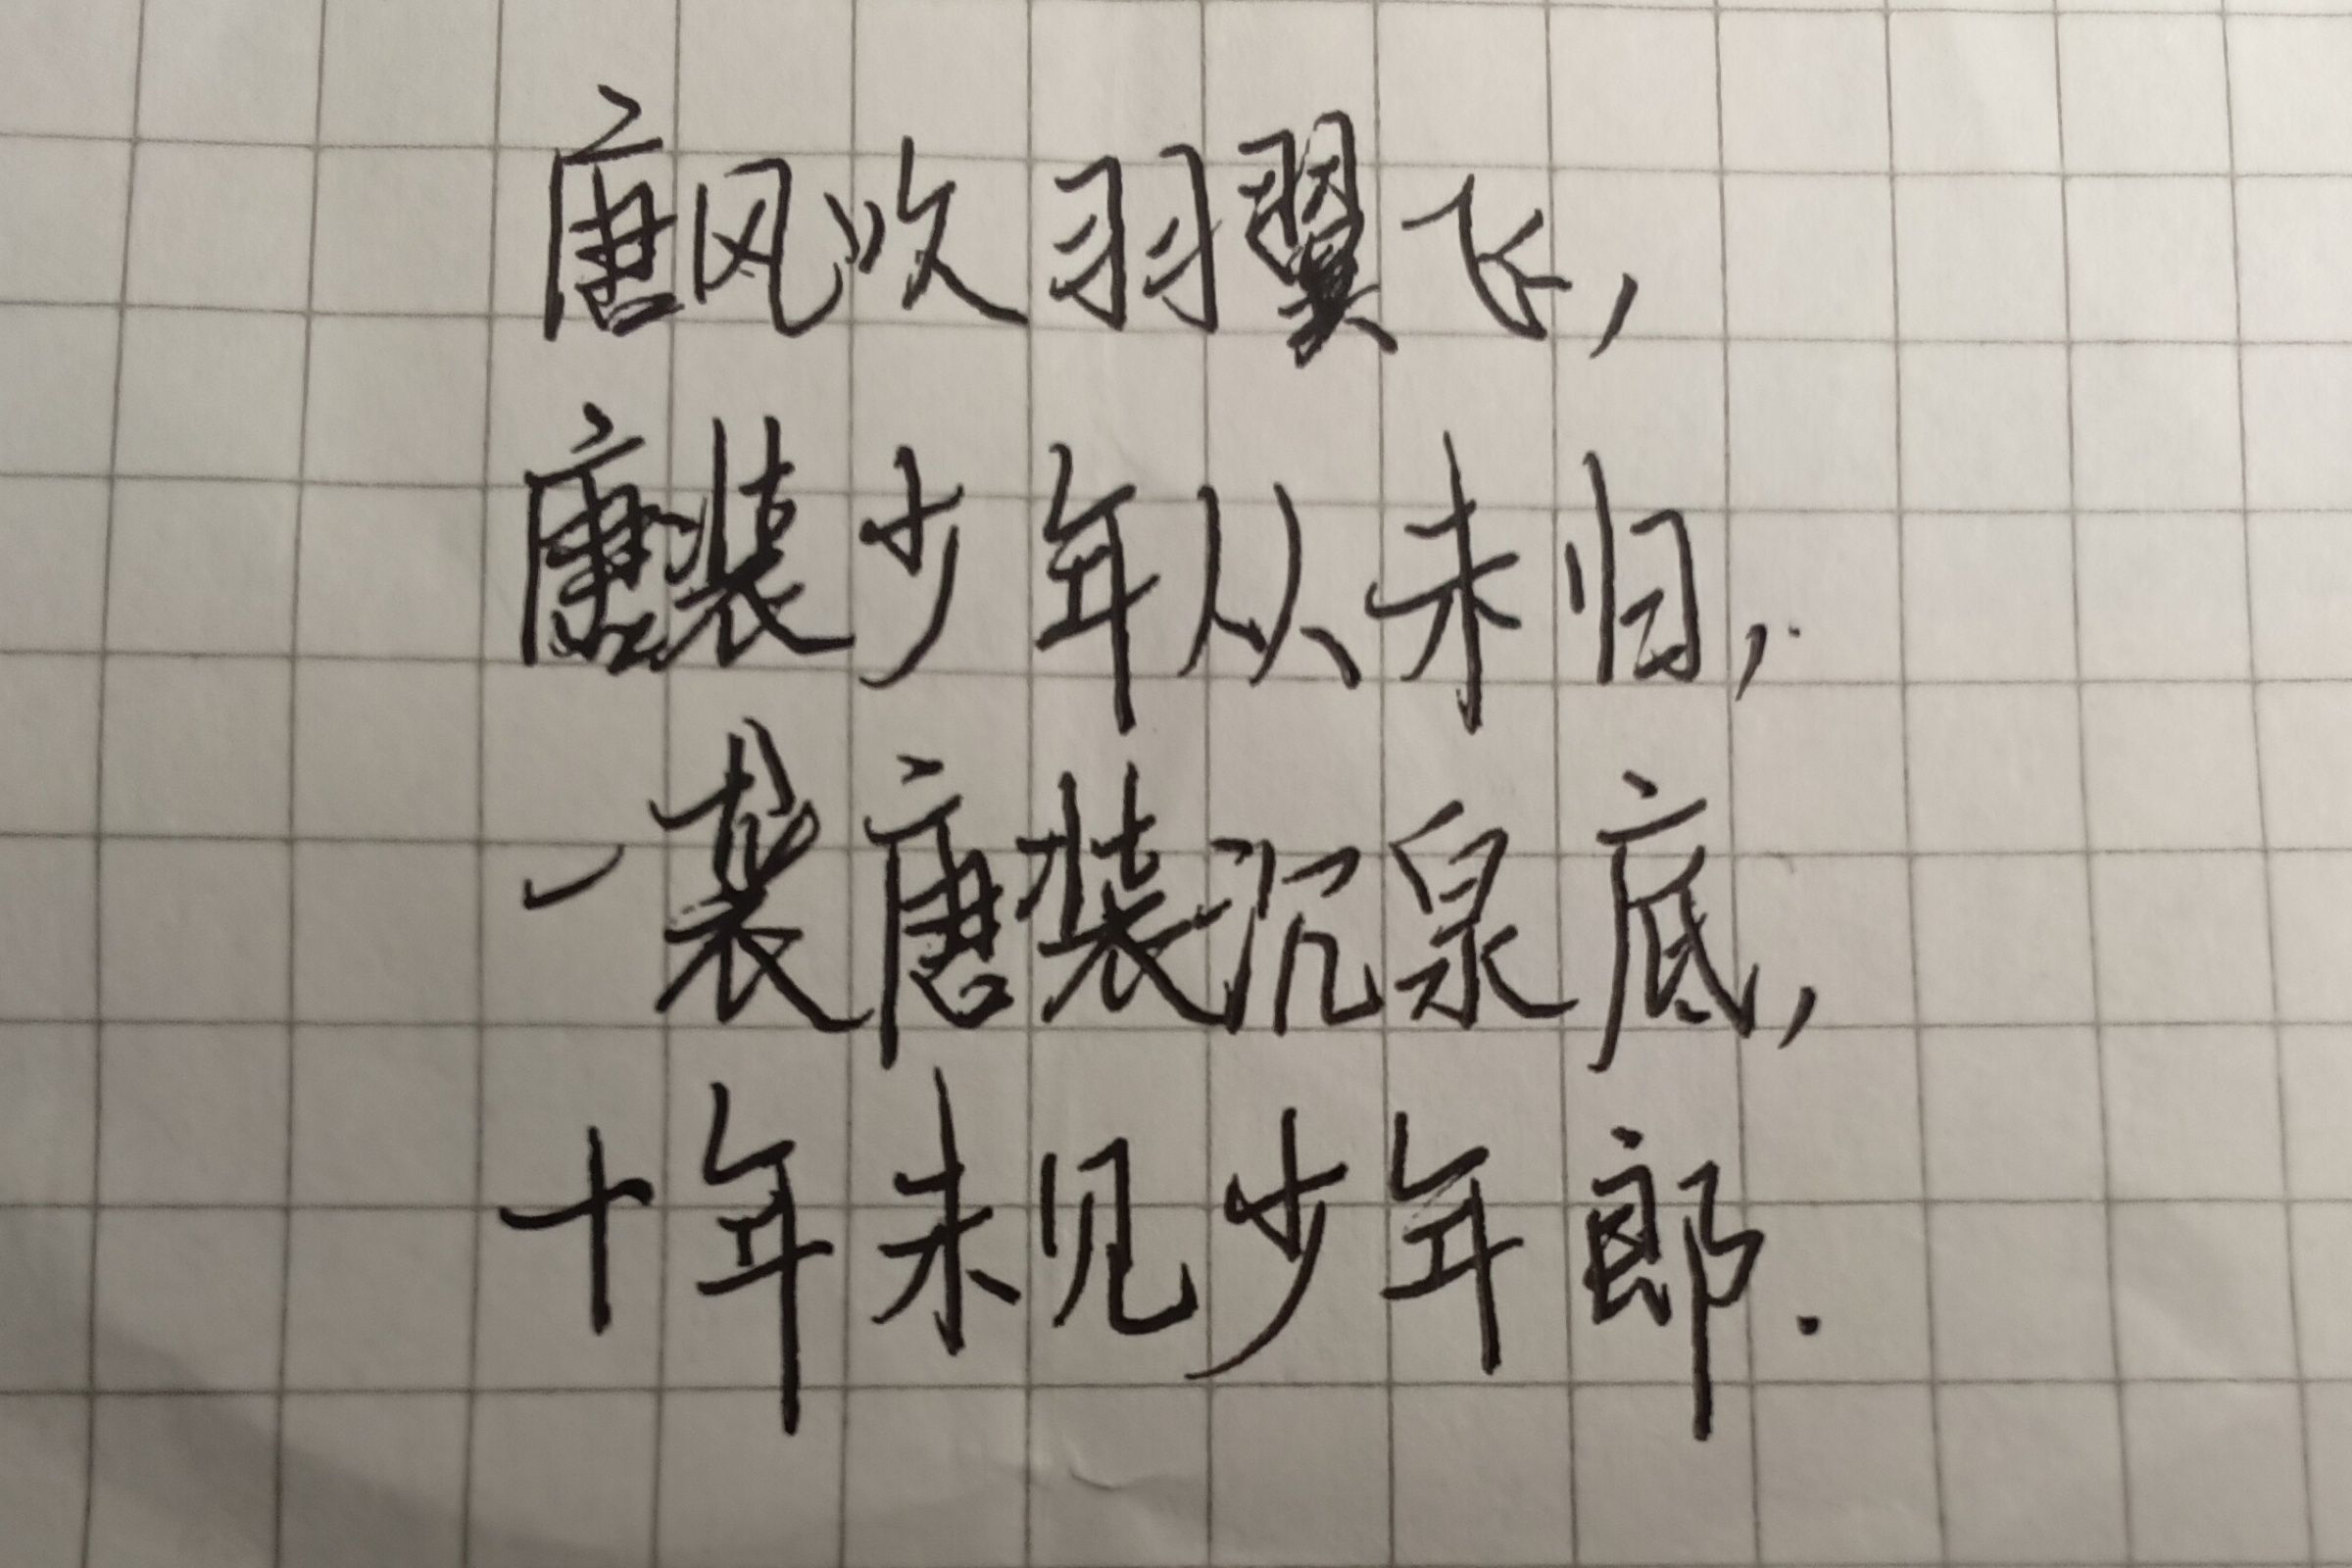 唐风吹羽翼飞,
唐装少年从未归,
一袭唐装沉泉底,
十年未见少年郎.